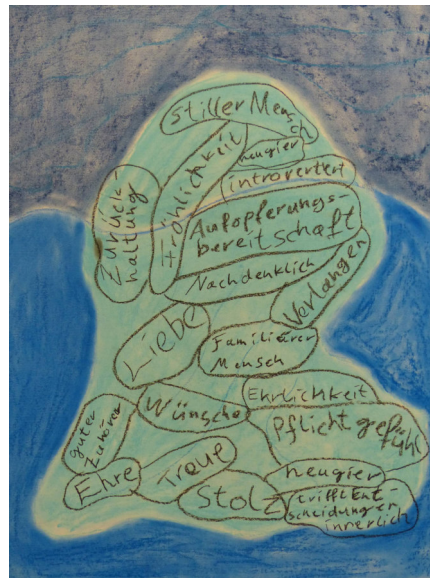 stiller Mensch
neugier
introvertiert
Zurück-
haltung
Fröhlichkeit
Aufopferungs-
bereitschaft
Nachdenklich
Verlangen
Liebe
Familiärer
Mensch
Ehrlichkeit
Wünsche
Pflichtgefühl
guter
Zuhörer
Treue
neugier
Ehre
Stolz
trifft Ent-
scheidungen
innerlich